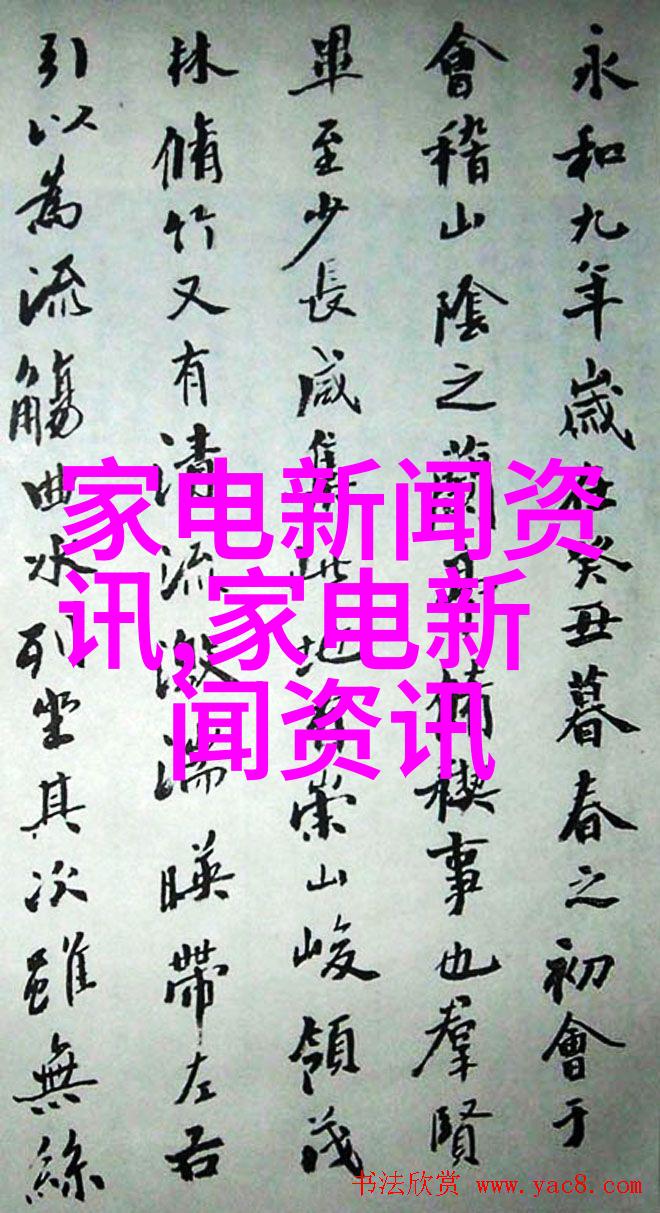 永和九年歲在癸丑暮春之初會于
會稽山陰之蘭亭脩稧事也羣賢
畢至少長咸集此地有崇山峻領茂
林脩竹又有清流激湍暎帶左右
引以為流觴曲水列坐其次雖無絲
家电新闻资
讯,家电新
闻资讯
书法欣赏 www.yac8.com